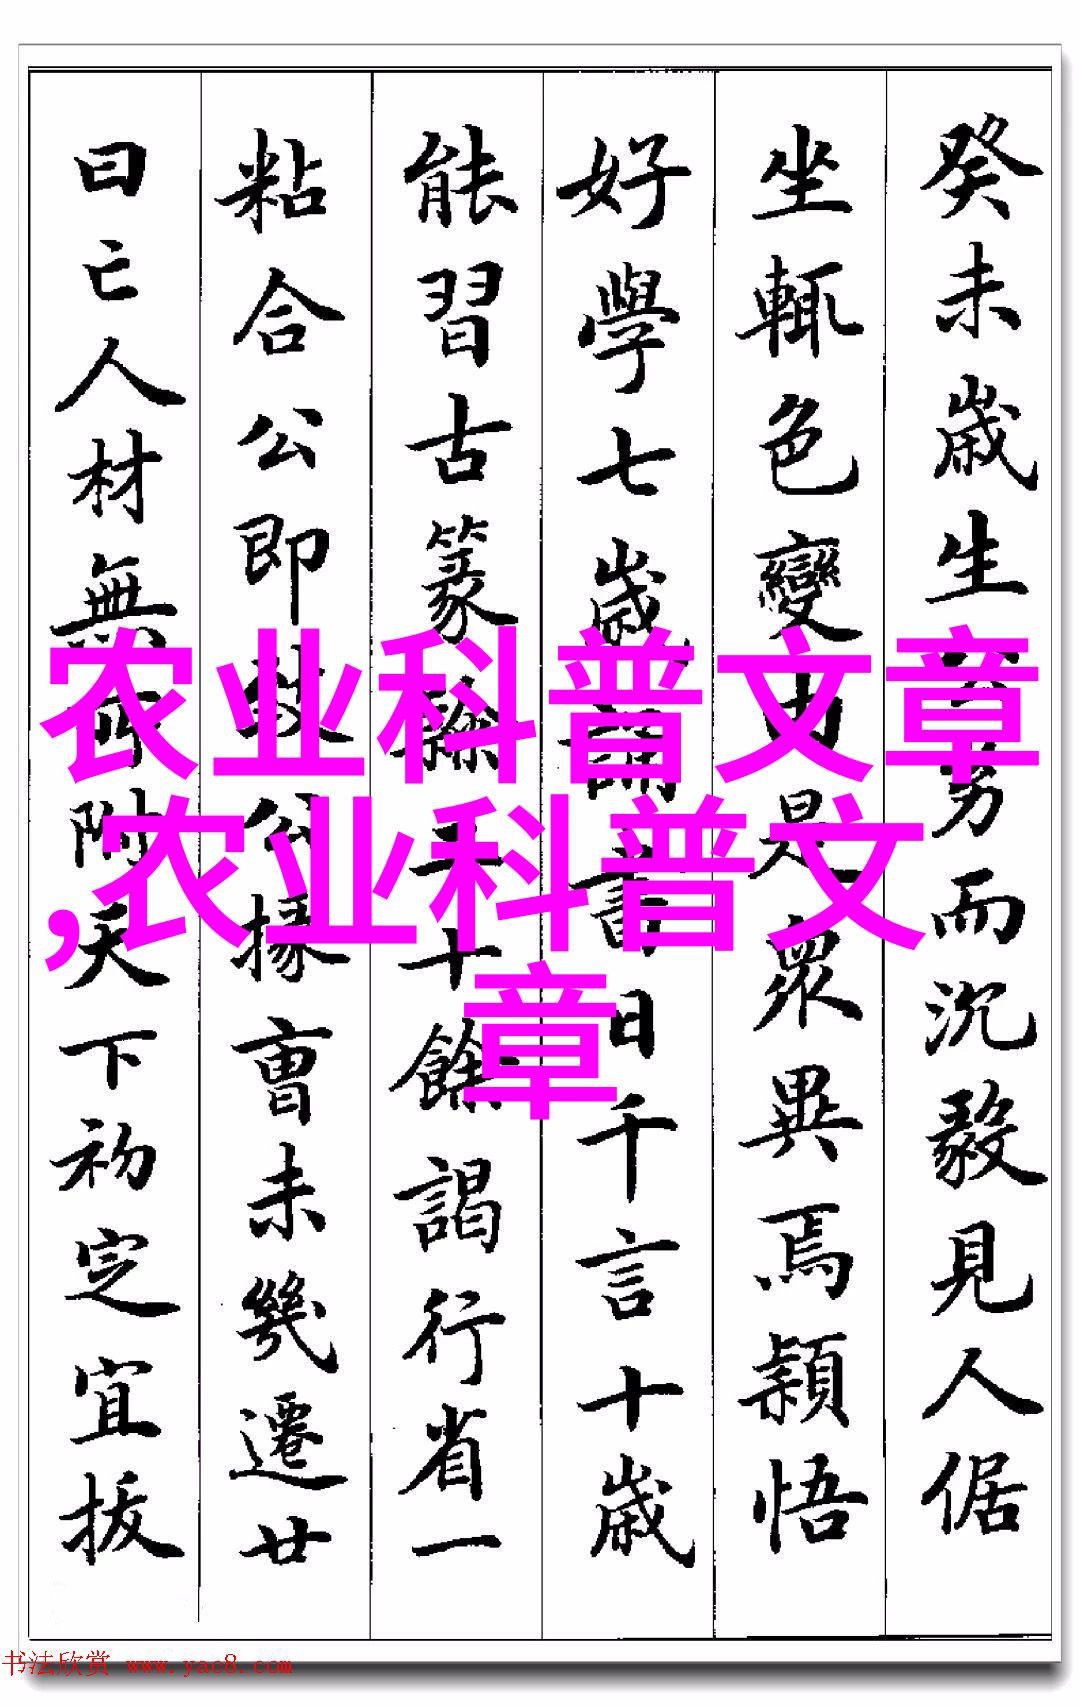 癸未歲生勇而沉毅見人倨
坐輒色變由是眾異焉穎悟
好學七歲誦書日千言十歲
能習古篆二十餘謁行省一
粘合公即公掾曹未幾遷廿
曰亡人材無所附天下初定宜拔
农业科普文章
,农业科普文
章
书法欣赏 www.yac8.com